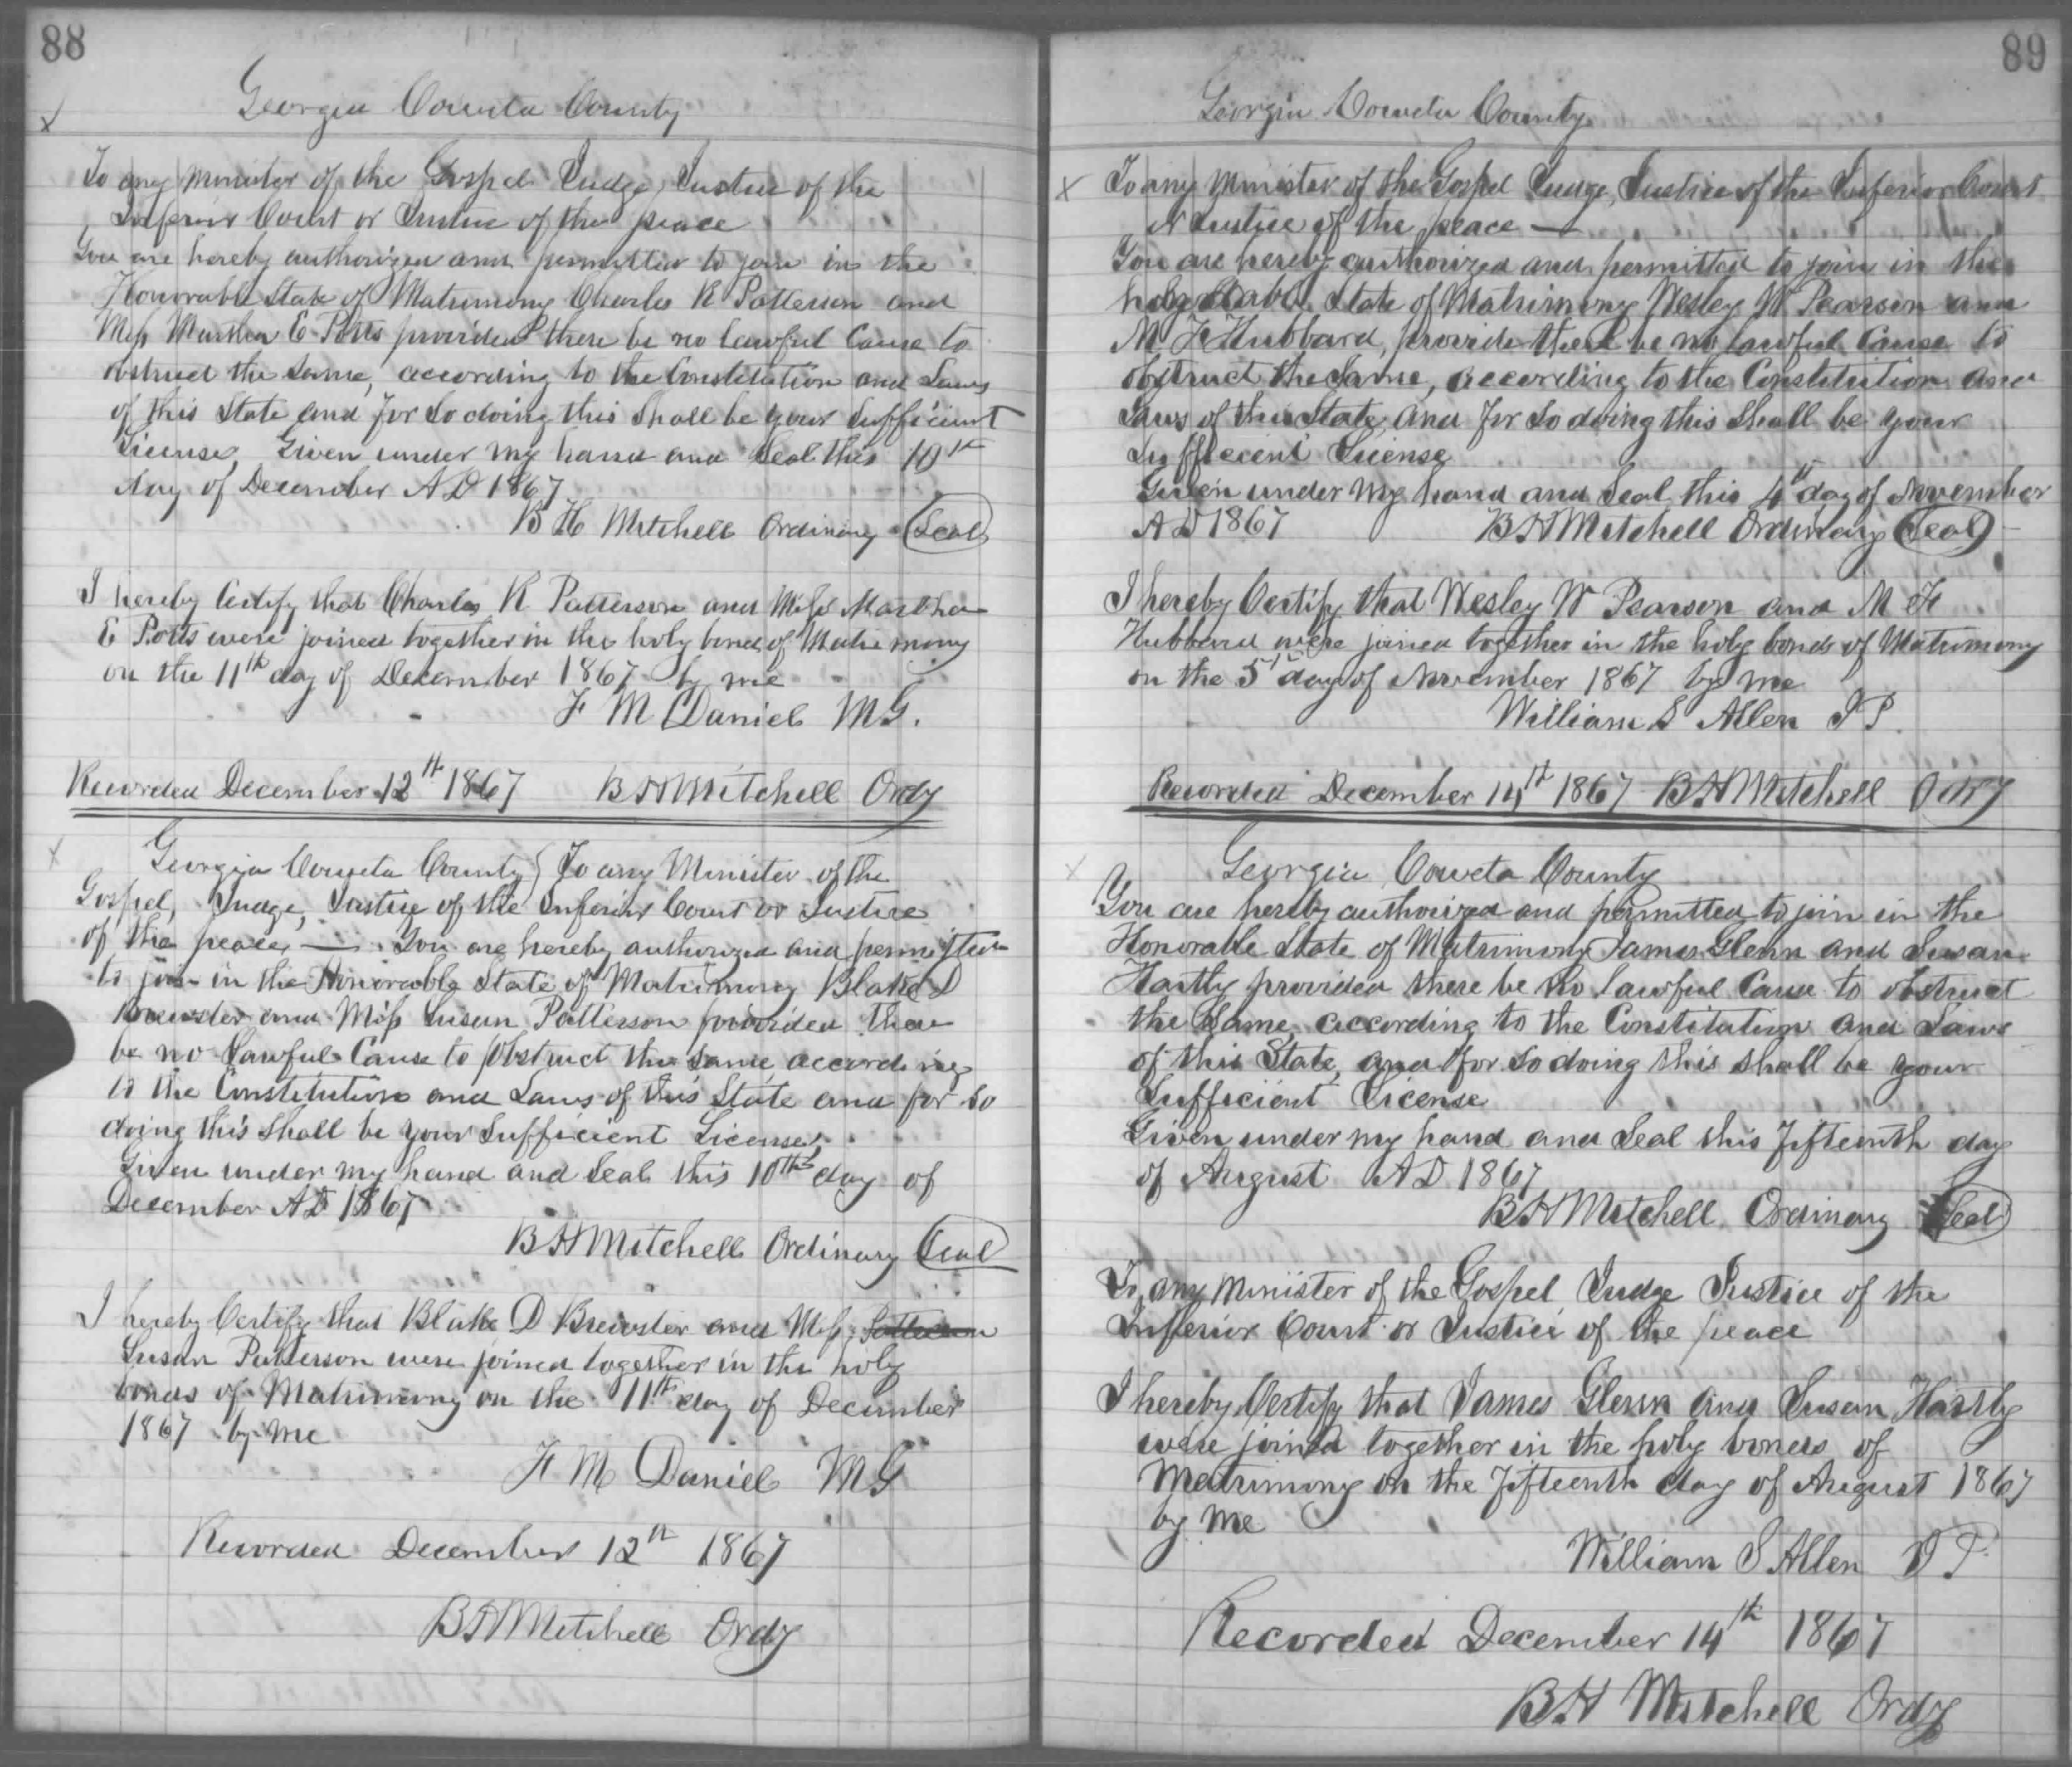 88
Georgia Coweta County
To any Minister of the Gospel Judge, Justice of the
Inferior Court or Justice of the peace
You are hereby authorized and permitted to join in the
Honorable State of Matrimony Charles R Patterson and
Miss Martha E Potts provided there be no lawful Cause to
obstruct the Same, according to the Constitution and Laws
of this State and for So doing this Shall be your Sufficient
License, Given under my hand and Seal this 10th
day of December AD 1867
B H Mitchell Ordinary Seal
I hereby Certify that Charles R Patterson and Miss Martha
E Potts were joined together in the holy bond of Matrimony
on the 11th day of December 1867 by me
F M Daniel MG.
Recorded December 12th 1867 B H Mitchell Ordy
Georgia Coweta County } To any Minister of the
Gospel, Judge, Justice of the Inferior Court or Justice
of the peace, — You are hereby authorized and permitted
to join in the Honorable State of Matrimony Blake D
Brewster and Miss Susan Patterson provided there
be no Lawful Cause to Obstruct the Same according
to the Constitution and Laws of this State and for So
doing this Shall be your Sufficient License,
Given under my hand and Seal this 10th day of
December AD 1867
B H Mitchell Ordinary Seal
I hereby Certify that Blake D Brewster and Miss
Susan Patterson were joined together in the holy
bonds of Matrimony on the 11th day of December
1867 by me
F M Daniel MG
Recorded December 12th 1867
B H Mitchell Ordy
89
Georgia Coweta County
To any Minister of the Gospel Judge, Justice of the Inferior Court
or Justice of the peace —
You are hereby authorized and permitted to join in the
State of Matrimony Wesley W Pearson and
M F Hubbard, provide there be no lawful Cause to
obstruct the Same, according to the Constitution and
Laws of this State, and for So doing this Shall be your
Sufficient License
Given under my hand and Seal this 4th day of November
AD 1867 B H Mitchell Ordinary Seal
I hereby Certify that Wesley W Pearson and M F
Hubbard were joined together in the holy bonds of Matrimony
on the 5th day of November 1867 by me
William S Allen J P.
Recorded December 14th 1867 B H Mitchell Ordy
Georgia Coweta County
You are hereby authorized and permitted to join in the
Honorable State of Matrimony James Glenn and Susan
Hartly provided there be no lawful Cause to obstruct
the Same, according to the Constitution and Laws
of this State, and for So doing this Shall be your
Sufficient License
Given under my hand and Seal this fifteenth day
of August AD 1867
B H Mitchell Ordinary Seal
To any Minister of the Gospel Judge Justice of the
Inferior Court or Justice of the peace
I hereby Certify that James Glenn and Susan Hartly
were joined together in the holy bonds of
Matrimony on the fifteenth day of August 1867
by me
William S Allen J P.
Recorded December 14th 1867
B H Mitchell Ordy